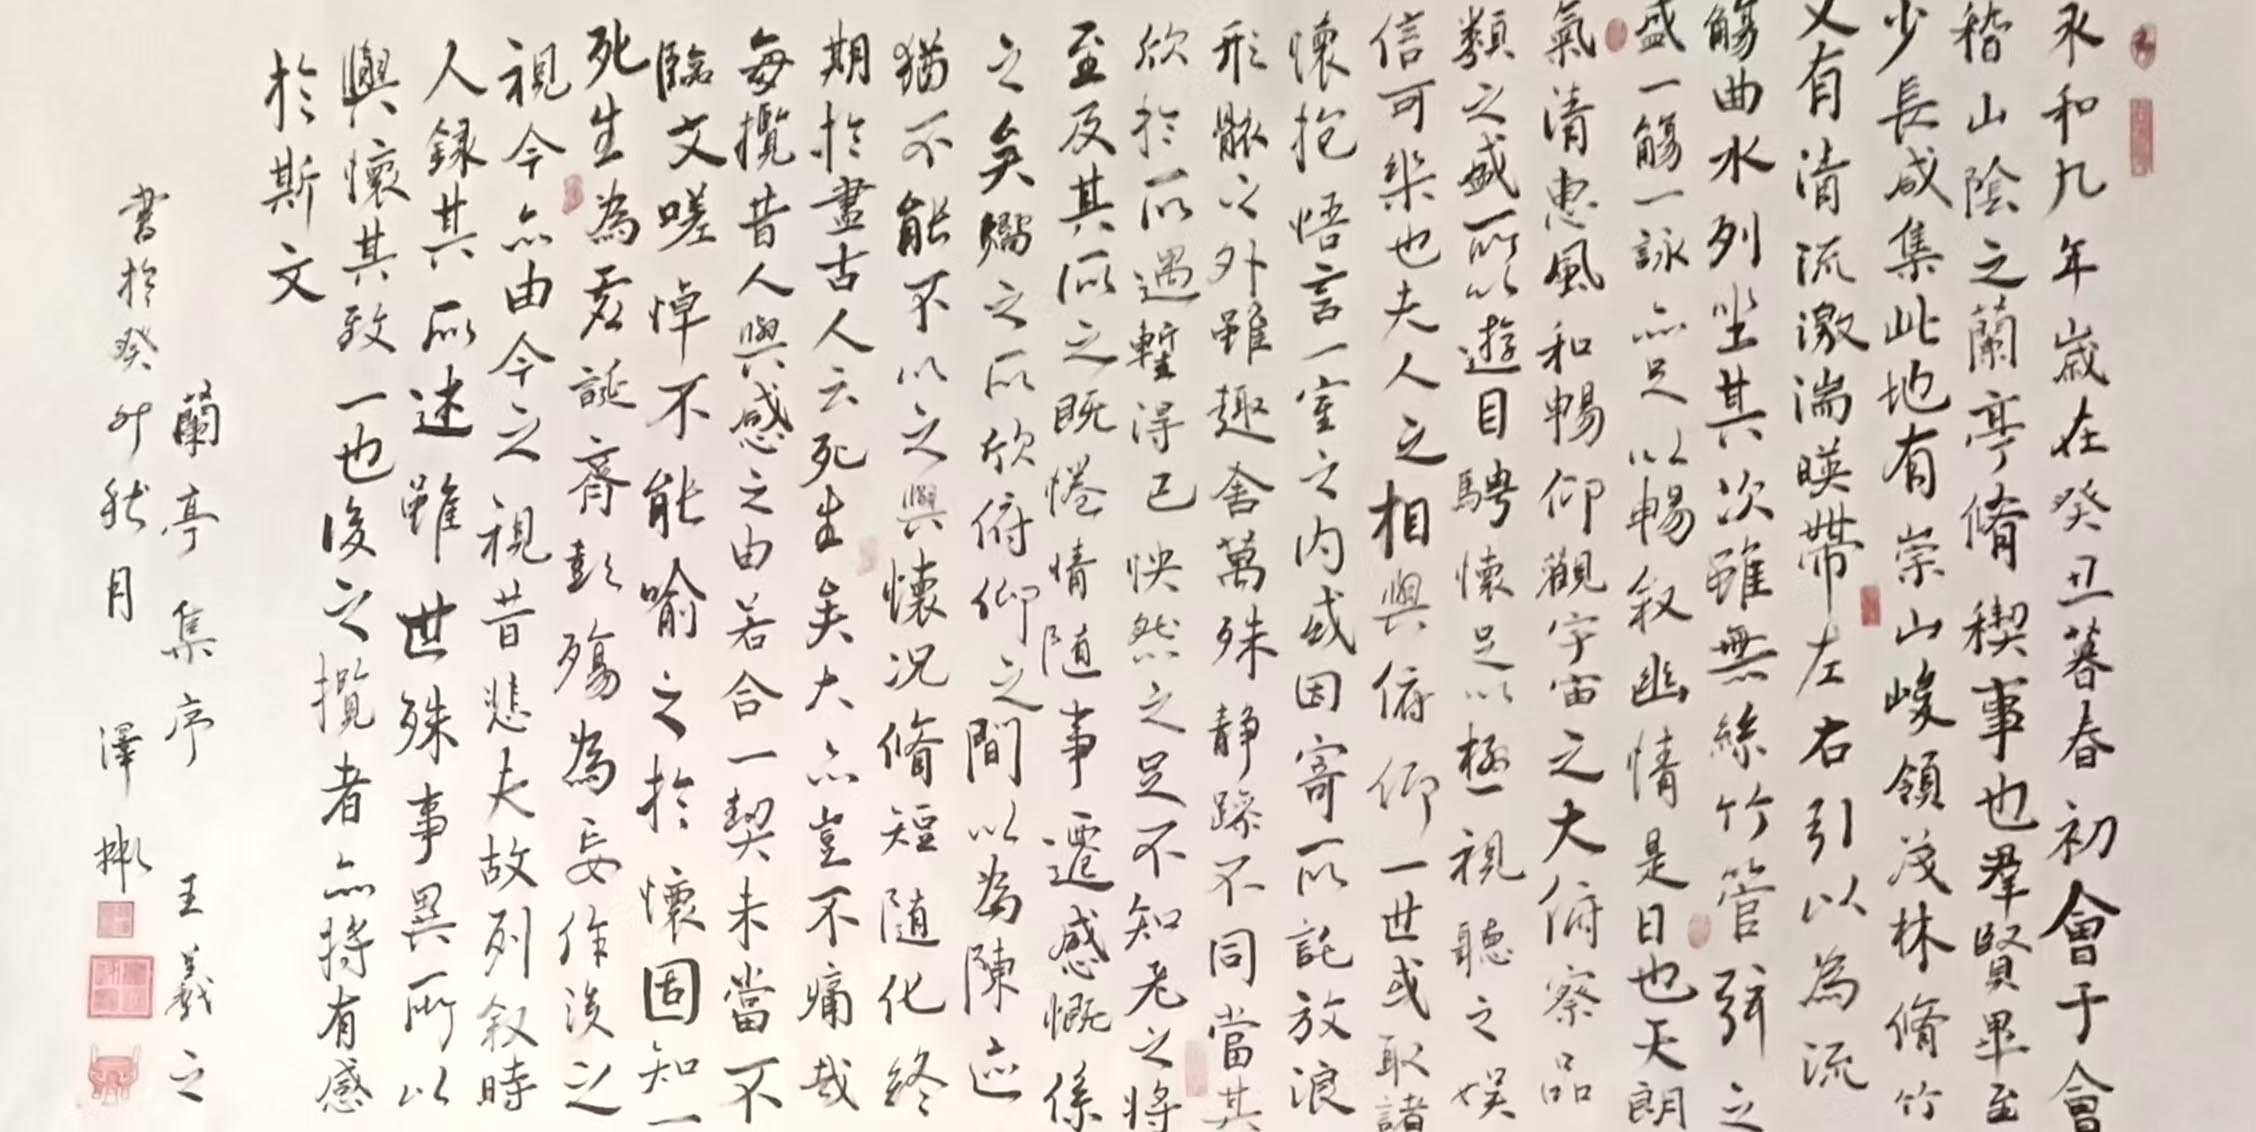 永和九年歲在癸丑暮春初會于會
稽山陰之蘭亭脩稧事也羣賢畢至
少長咸集此地有崇山峻領茂林脩竹
又有清流激湍暎帶左右引以為流
觴曲水列坐其次雖無絲竹管弦之
盛一觴一詠亦足以暢叙幽情是日也天朗
氣清惠風和暢仰觀宇宙之大俯察品
類之盛所以遊目騁懷足以極視聽之娛
信可樂也夫人之相與俯仰一世或取諸
懷抱悟言一室之內或因寄所託放浪
形骸之外雖趣舍萬殊静躁不同當其
欣於所遇蹔得己怏然之足不知老之將
至及其所之既惓情隨事遷感慨係
之矣嚮之所欣俯仰之間以為陳迹
猶不能不以之興懷況脩短隨化終
期於盡古人云死生矣大亦豈不痛哉
每攬昔人興感之由若合一契未當不
臨文嗟悼不能喻之於懷固知一
死生為虛誕齊彭殤為妄作後之
視今亦由今之視昔悲夫故列叙時
人録其所述雖世殊事異所以
興懷其致一也後之攬者亦將有感
於斯文
蘭亭集序 王羲之
書於癸卯秋月 澤彬